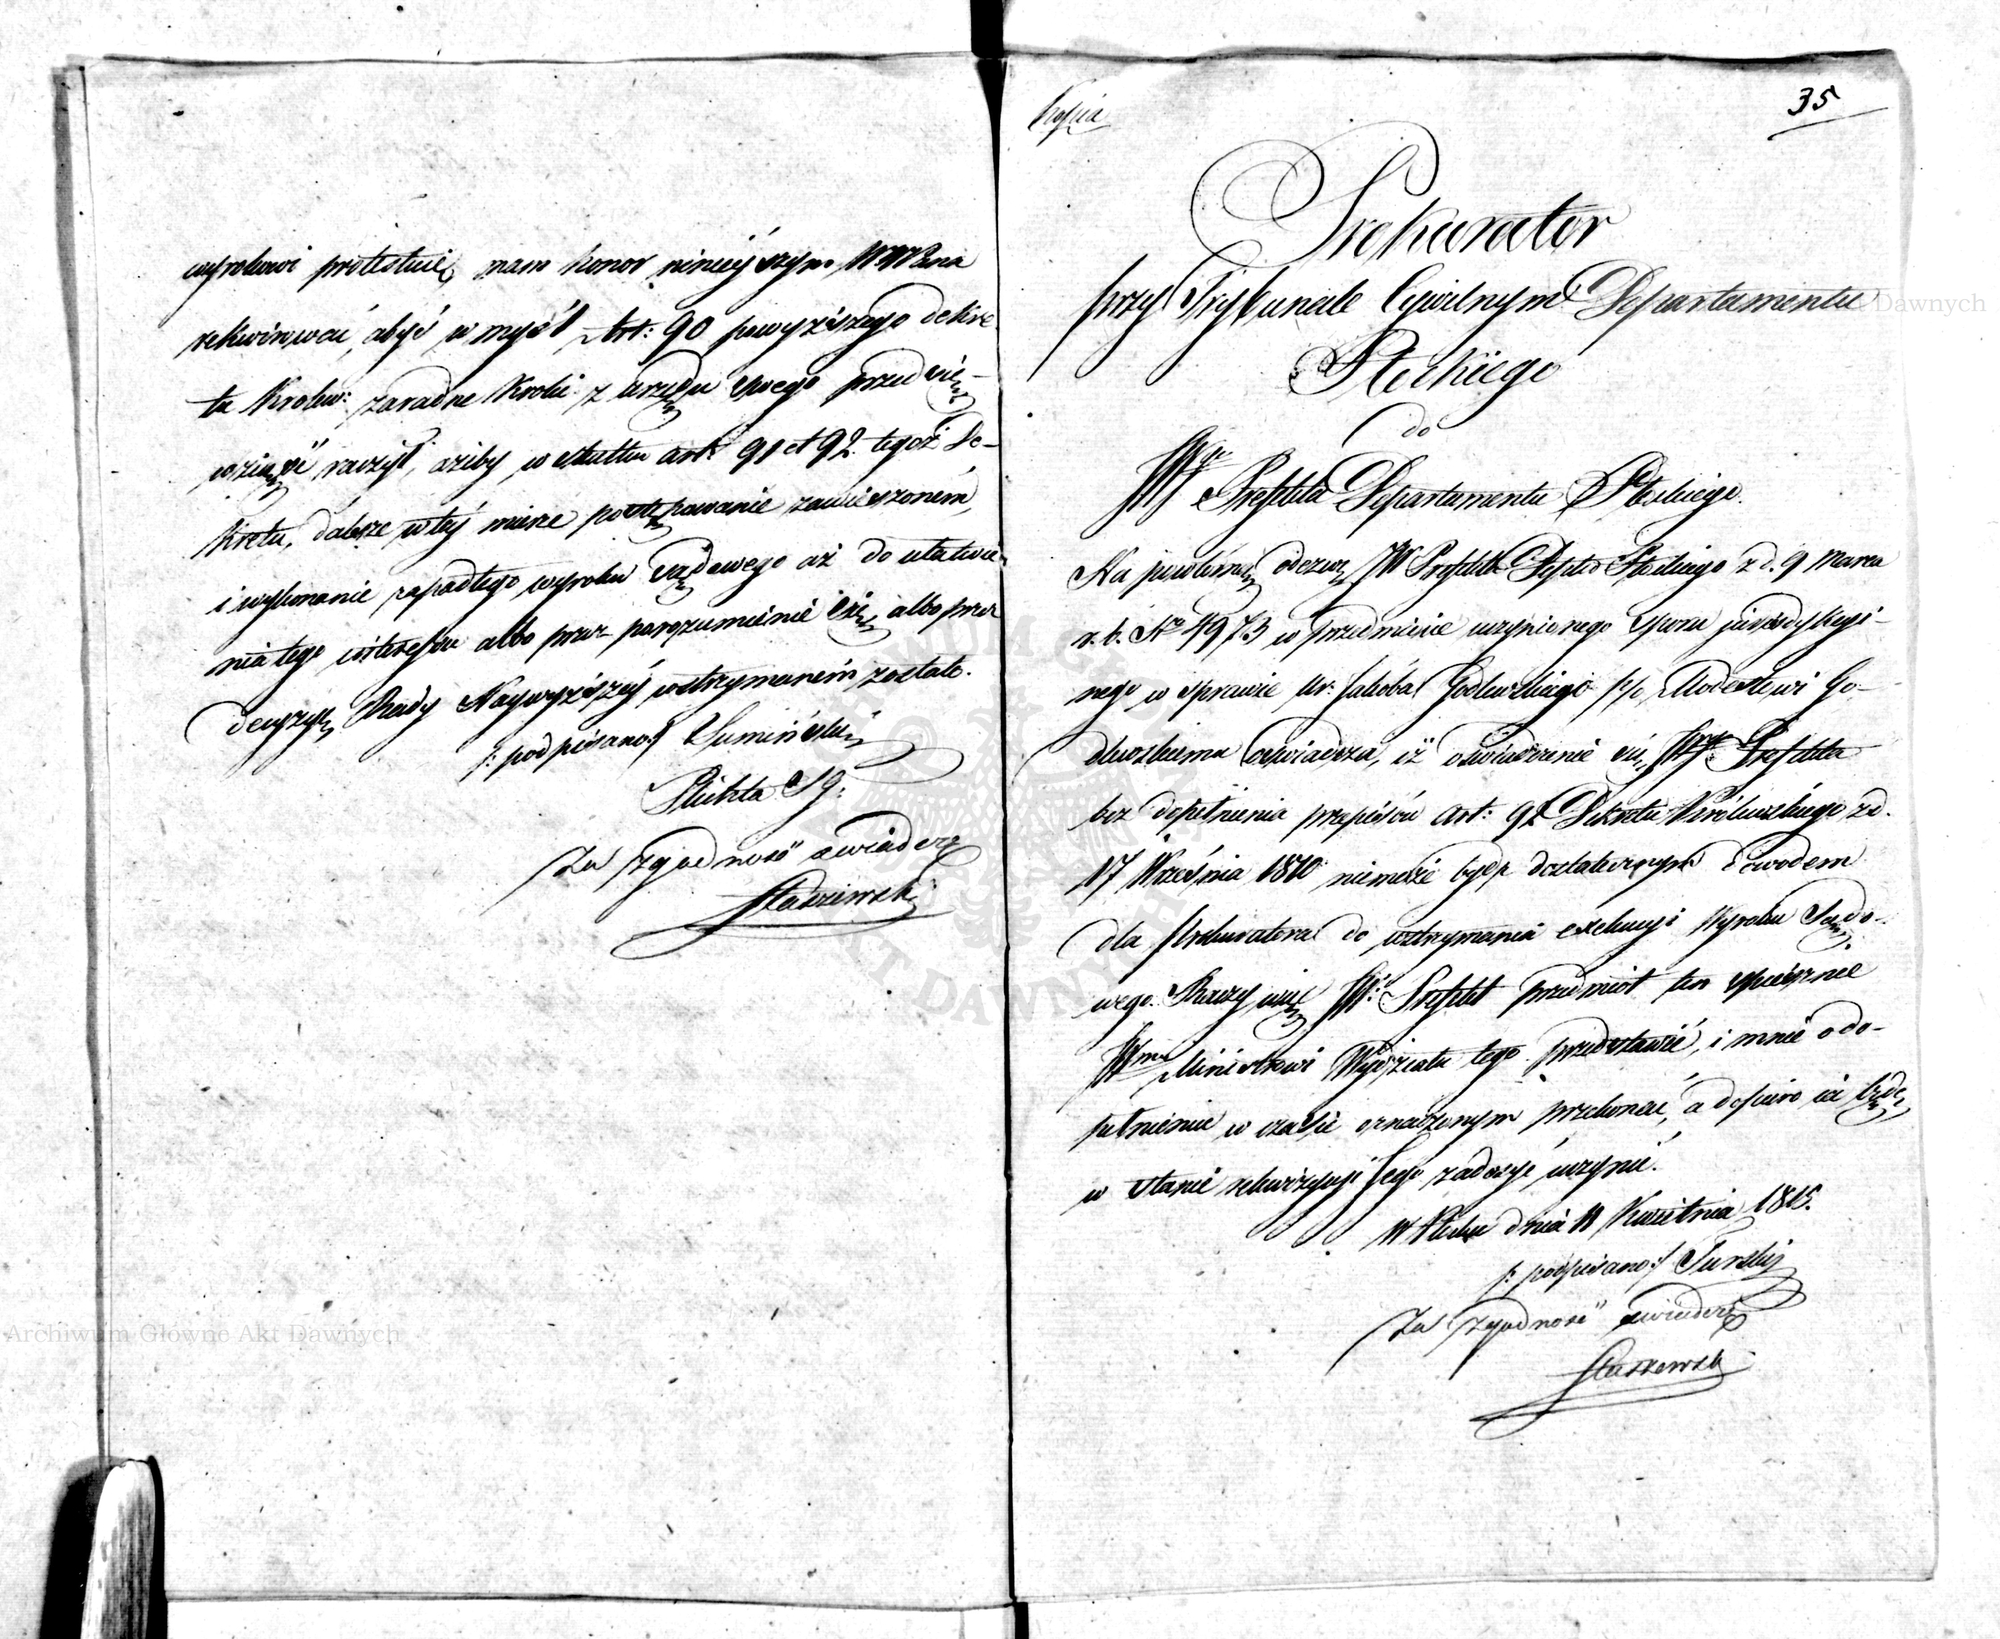 wyrokowi protestuię, mam honor ninieyszym WWPana
rekwirować, abyś w myśl Art: 90 powyższego dekre-
tu Królew: zaradne kroki z urzędu swego przedsię-
wziąść raczył, ażeby w skutku art: 91 et 92 tegoż De-
kretu, dalsze w tey mierze postępowanie zawieszonem,
i wykonanie zapadłego wyroku sądowego aż do ułatwie-
nia tego interessu albo przez porozumienie się, albo przez
decyzyą Rady Naywyższey wstrzymanem zostało.
/: podpisano :/ Sumiński
Plichta SJ:
Za zgodność świadczę
Staszewski
Kopia
35
Prokurator
przy Trybunale Cywilnym Departamentu
Płockiego
do
JWgo Prefekta Departamentu Płockiego.
Na powtórną odezwę JW Prefekta Deptu Płockiego z d. 9 Marca
r. b. Nro 4973 w przedmiocie uczynionego sporu jurysdykcyi-
nego w sprawie Ur. Jakóba Godlewskiego p/o Modestowi Go-
dlewskiemu oświadcza, iż oświadczenie się JWgo Prefekta
bez dopełnienia przepisów art: 92 Dekretu Królewskiego z d.
17 Września 1810 niemoże bydź dostatecznym dowodem
dla Prokuratora do wstrzymania exekucyi Wyroku Sądo-
wego. Raczy więc JW: Prefekt przedmiot ten spiesznie
JWmu Ministrowi Wydziału tego przedstawić, i mnie o do-
pełnieniu w czasie oznaczonym przekonać, a dopiero ia będę
w stanie rekwizycyi Jego zadosyć uczynić.
W Płocku dnia 11 Kwietnia 1815.
/: podpisano :/ Turski
Za zgodność świadczę
Staszewski
Archiwum Główne Akt Dawnych